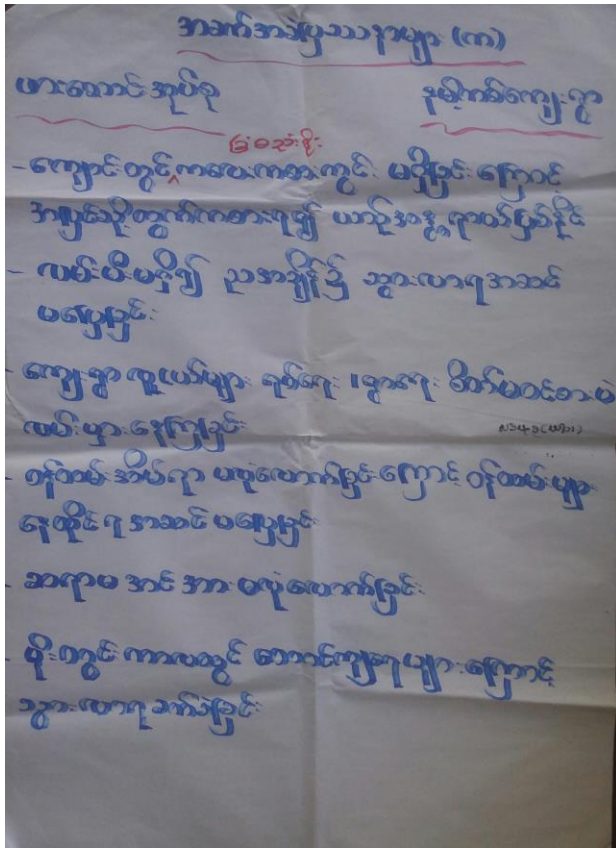 အခက်အခဲပြဿနာများ (က)
ဖားဆောင်အုပ်စု နမ့်ကစ်ကျေးရွာ
ခြံစည်းရိုး
- ကျောင်းတွင် ကလေးကစားကွင်း မရှိခြင်းကြောင့်
အပြင်သို့ထွက်ကစားရ၍ ယာဉ်အန္တရာယ်ဖြစ်နိုင်
- လမ်းမီးမရှိ၍ ညအချိန်၌ သွားလာရအဆင်
မပြေခြင်း
- ကျေးရွာလူငယ်များ ရပ်ရေး၊ ရွာရေး စိတ်မဝင်စား
လမ်းမှားနေကြခြင်း
- ဝန်ထမ်းအိမ်ရာ မလုံလောက်ခြင်းကြောင့် ဝန်ထမ်းများ
နေထိုင်ရအဆင်မပြေခြင်း
- ဆရာမအင်အားမလုံလောက်ခြင်း
- မိုးတွင်းကာလတွင် တောင်ကျရေများကြောင့်
သွားလာရခက်ခဲခြင်း